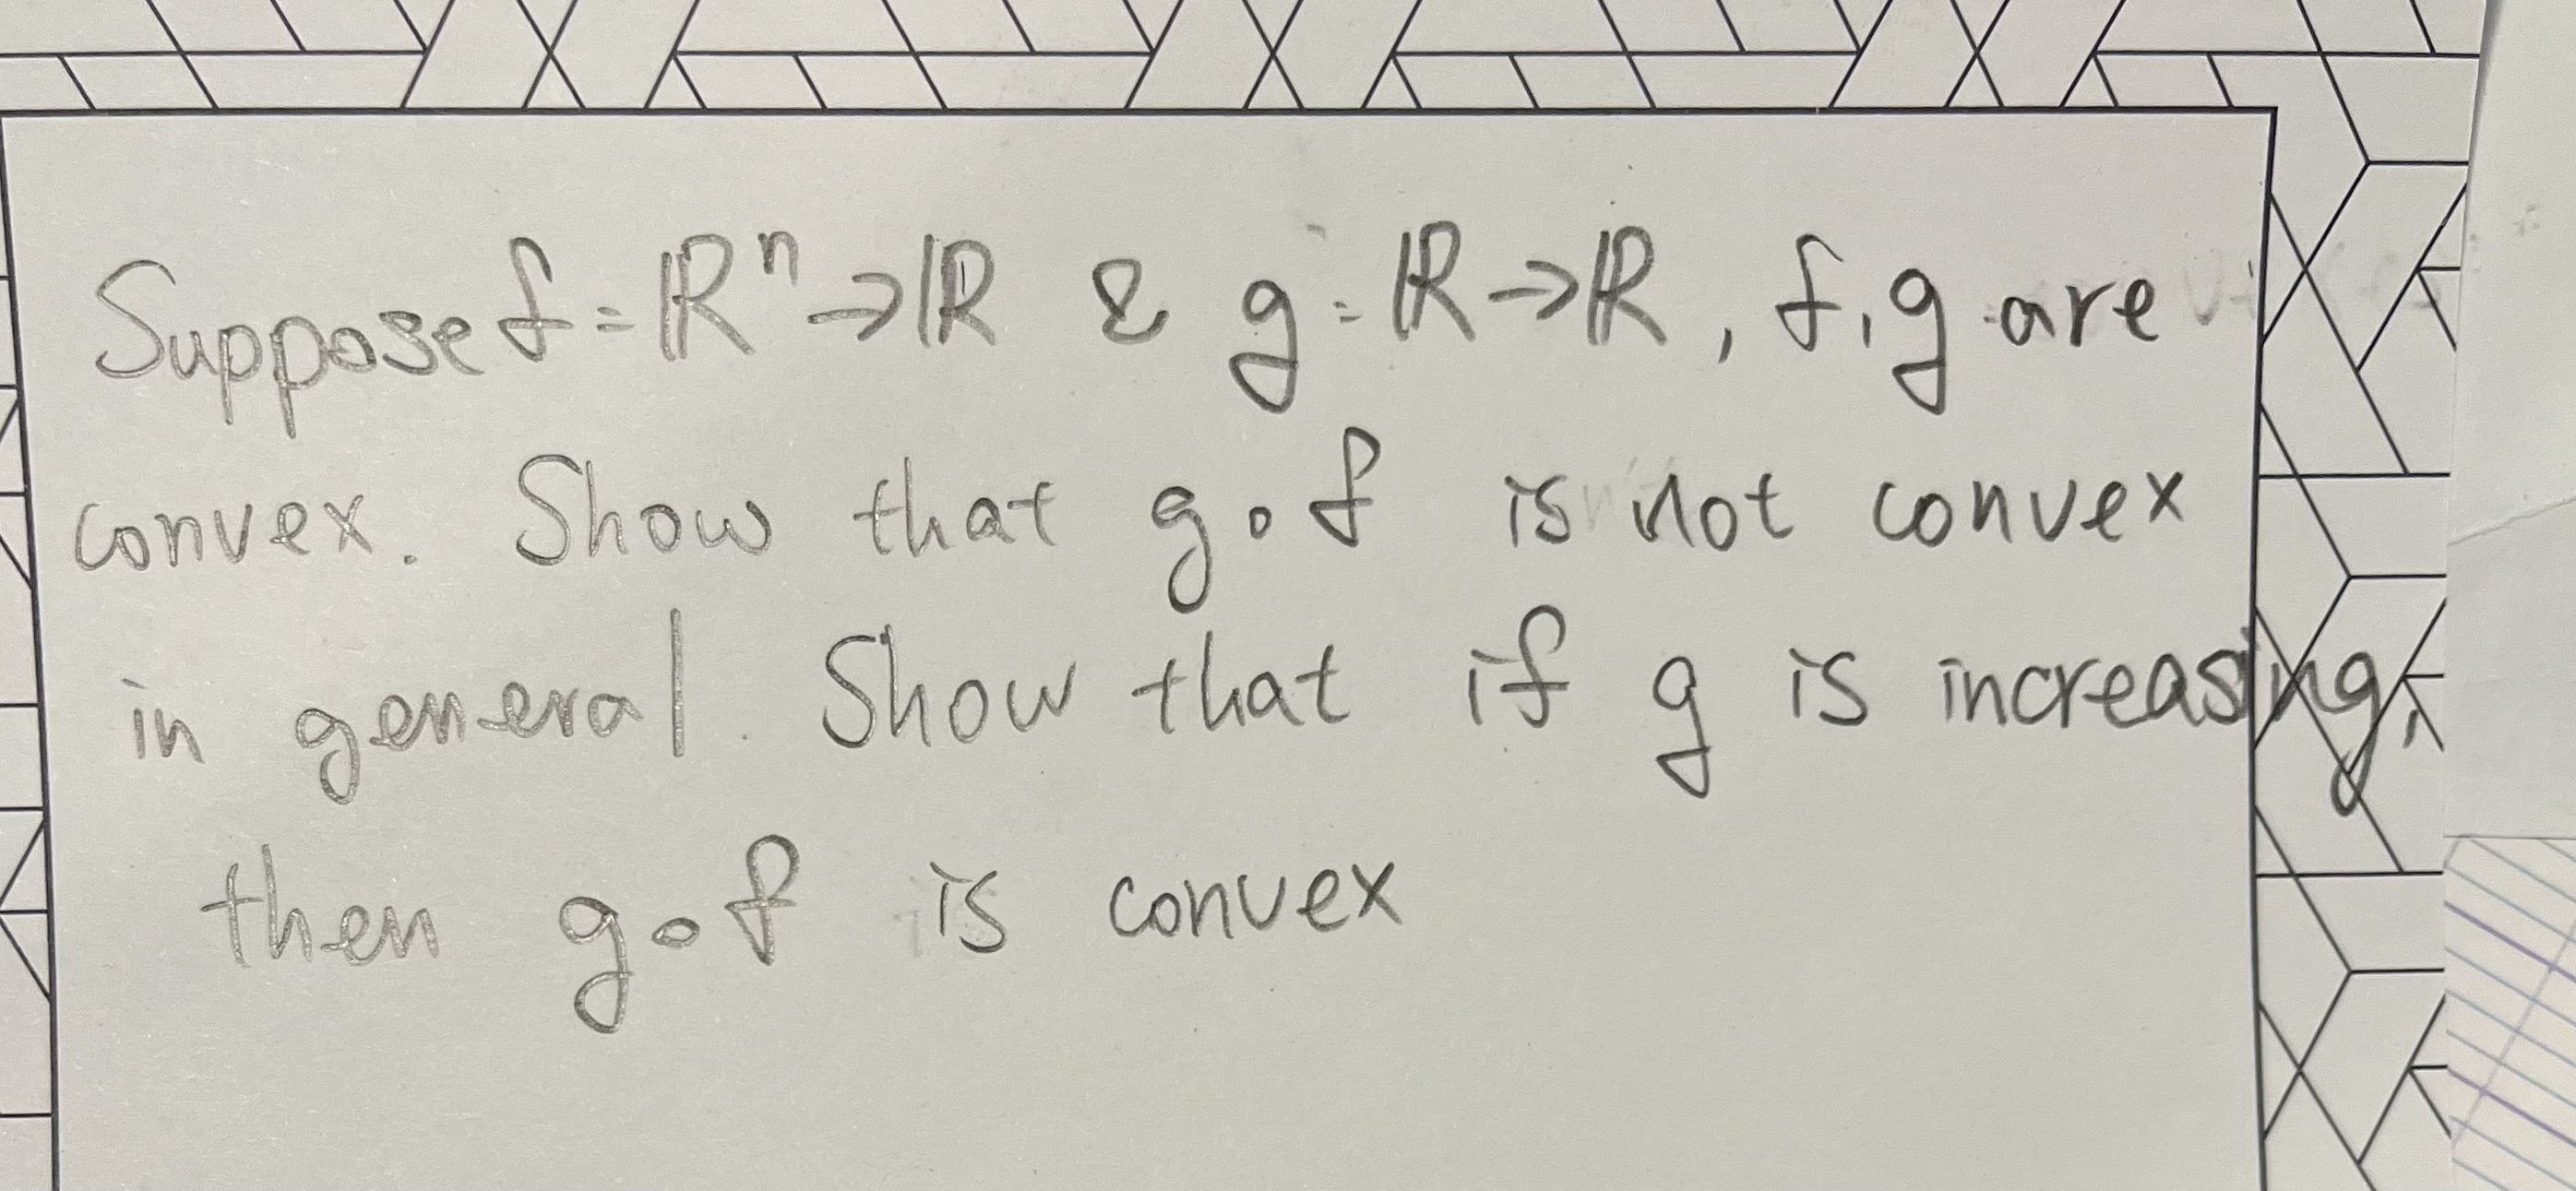 Suppose f = ℝⁿ → ℝ & g : ℝ → ℝ , f, g are
convex. Show that g ∘ f is not convex
in general. Show that if g is increasing,
then g ∘ f is convex